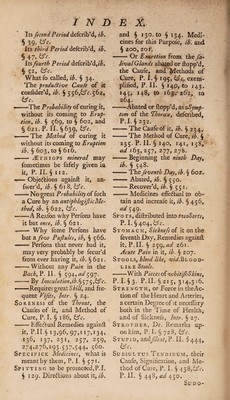 INDEX.
Its second Period describ'd, ib.
§ 39, &c.
Its third Period describ'd, ib.
§ 47, &c.
Its fourth Period describ'd, ib.
§ 51, &c.
What so called, ib. § 34.
The productive Cause of it
consider'd, ib. § 556, &c.
&c.
—The Probability of curing it,
without its coming to Erup-
tion, ib. § 569, to § 602, and
§ 621. P. II. § 639, &c.
—The Method of curing it
without its coming to Eruption
ib. § 603, to § 610.
—ÆTHIOPS mineral may
sometimes be safely given in
it, P. II. § 112.
—Objections against it, an-
swer'd, ib. § 618, &c.
—No great Probability of such
a Cure by an antiphlogistic Me-
thod, ib. § 622, &c.
—A Reason why Persons have
it but once, ib. § 621.
—Why some Persons have
but a few Pustules, ib. § 566.
—Persons that never had it,
may very probably be secur'd
from ever having it, ib. § 621.
—Without any Pain in the
Back, P. II. § 594, ad 597.
—By Inoculation, ib. § 575, &c.
—Require great Skill, and fre-
quent Visits, Inter. § 24.
SORENESS of the Throat, the
Causes of it, and Method of
Cure, P. I. § 186, &c.
—Effectual Remedies against
it, P. II § 13, 96, 97, 117, 134,
136, 137, 231, 257, 259,
274, 276, 193, 537, 544, 560.
SPECIFICK Medicines, what is
meant by them, P. I. § 571.
SPITTING to be promoted, P. I.
§ 129. Directions about it, ib.
and § 130. to § 134. Medi-
cines for this Purpose, ib. and
§ 200, 201.
—Or Excretion from the sa-
lival Glands abated or stopp'd,
the Cause, and Methods of
Cure, P. I. § 195, &c. exem-
plified, P. II. § 140, to 143.
145, 148, to 163. 262, to
264.
—Abated or stopp'd, as a Symp-
tom of the Thorax, described,
P. I. § 232.
—The Cause of it, ib. § 234.
—The Method of Cure, ib. §
235. P. II. § 140, 141, 158,
ad 163, 257, 277, 278.
—Beginning the ninth Day,
ib. § 548.
—The seventh Day, ib. § 602.
—Abated, ib. § 550.
—Recover'd, ib. § 551.
—Medicines effectual to ob-
tain and increase it, ib. § 456,
ad 459.
SPOTS, distributed into transverts,
P. I. § 404, &c.
STOMACH, Sickness of it on the
seventh Day, Remedies against
it, P. II. § 259, ad 261.
Acute Pain in it, ib. § 207.
STOOLS, blood like, vid. BLOOD-
LIKE Stools.
—With Pieces of nobis{fibskins,
P. I. § 3. P. II. § 215, 314, 316.
STRENGTH, or Force in the Ac-
tion of the Heart and Arteries,
a certain Degree of it necessary
both in the Time of Health,
and of Sickness, Inter. § 27.
STROTHER, Dr. Remarks up-
on him, P. I. § 728, &c.
STUPID, and silent, P. II. § 444,
&c.
SUBSULTUS TENDINUM, their
Cause, Signification, and Me-
thod of Cure, P. I. § 438, &c.
P. II. § 448, ad 450.
SUDO-